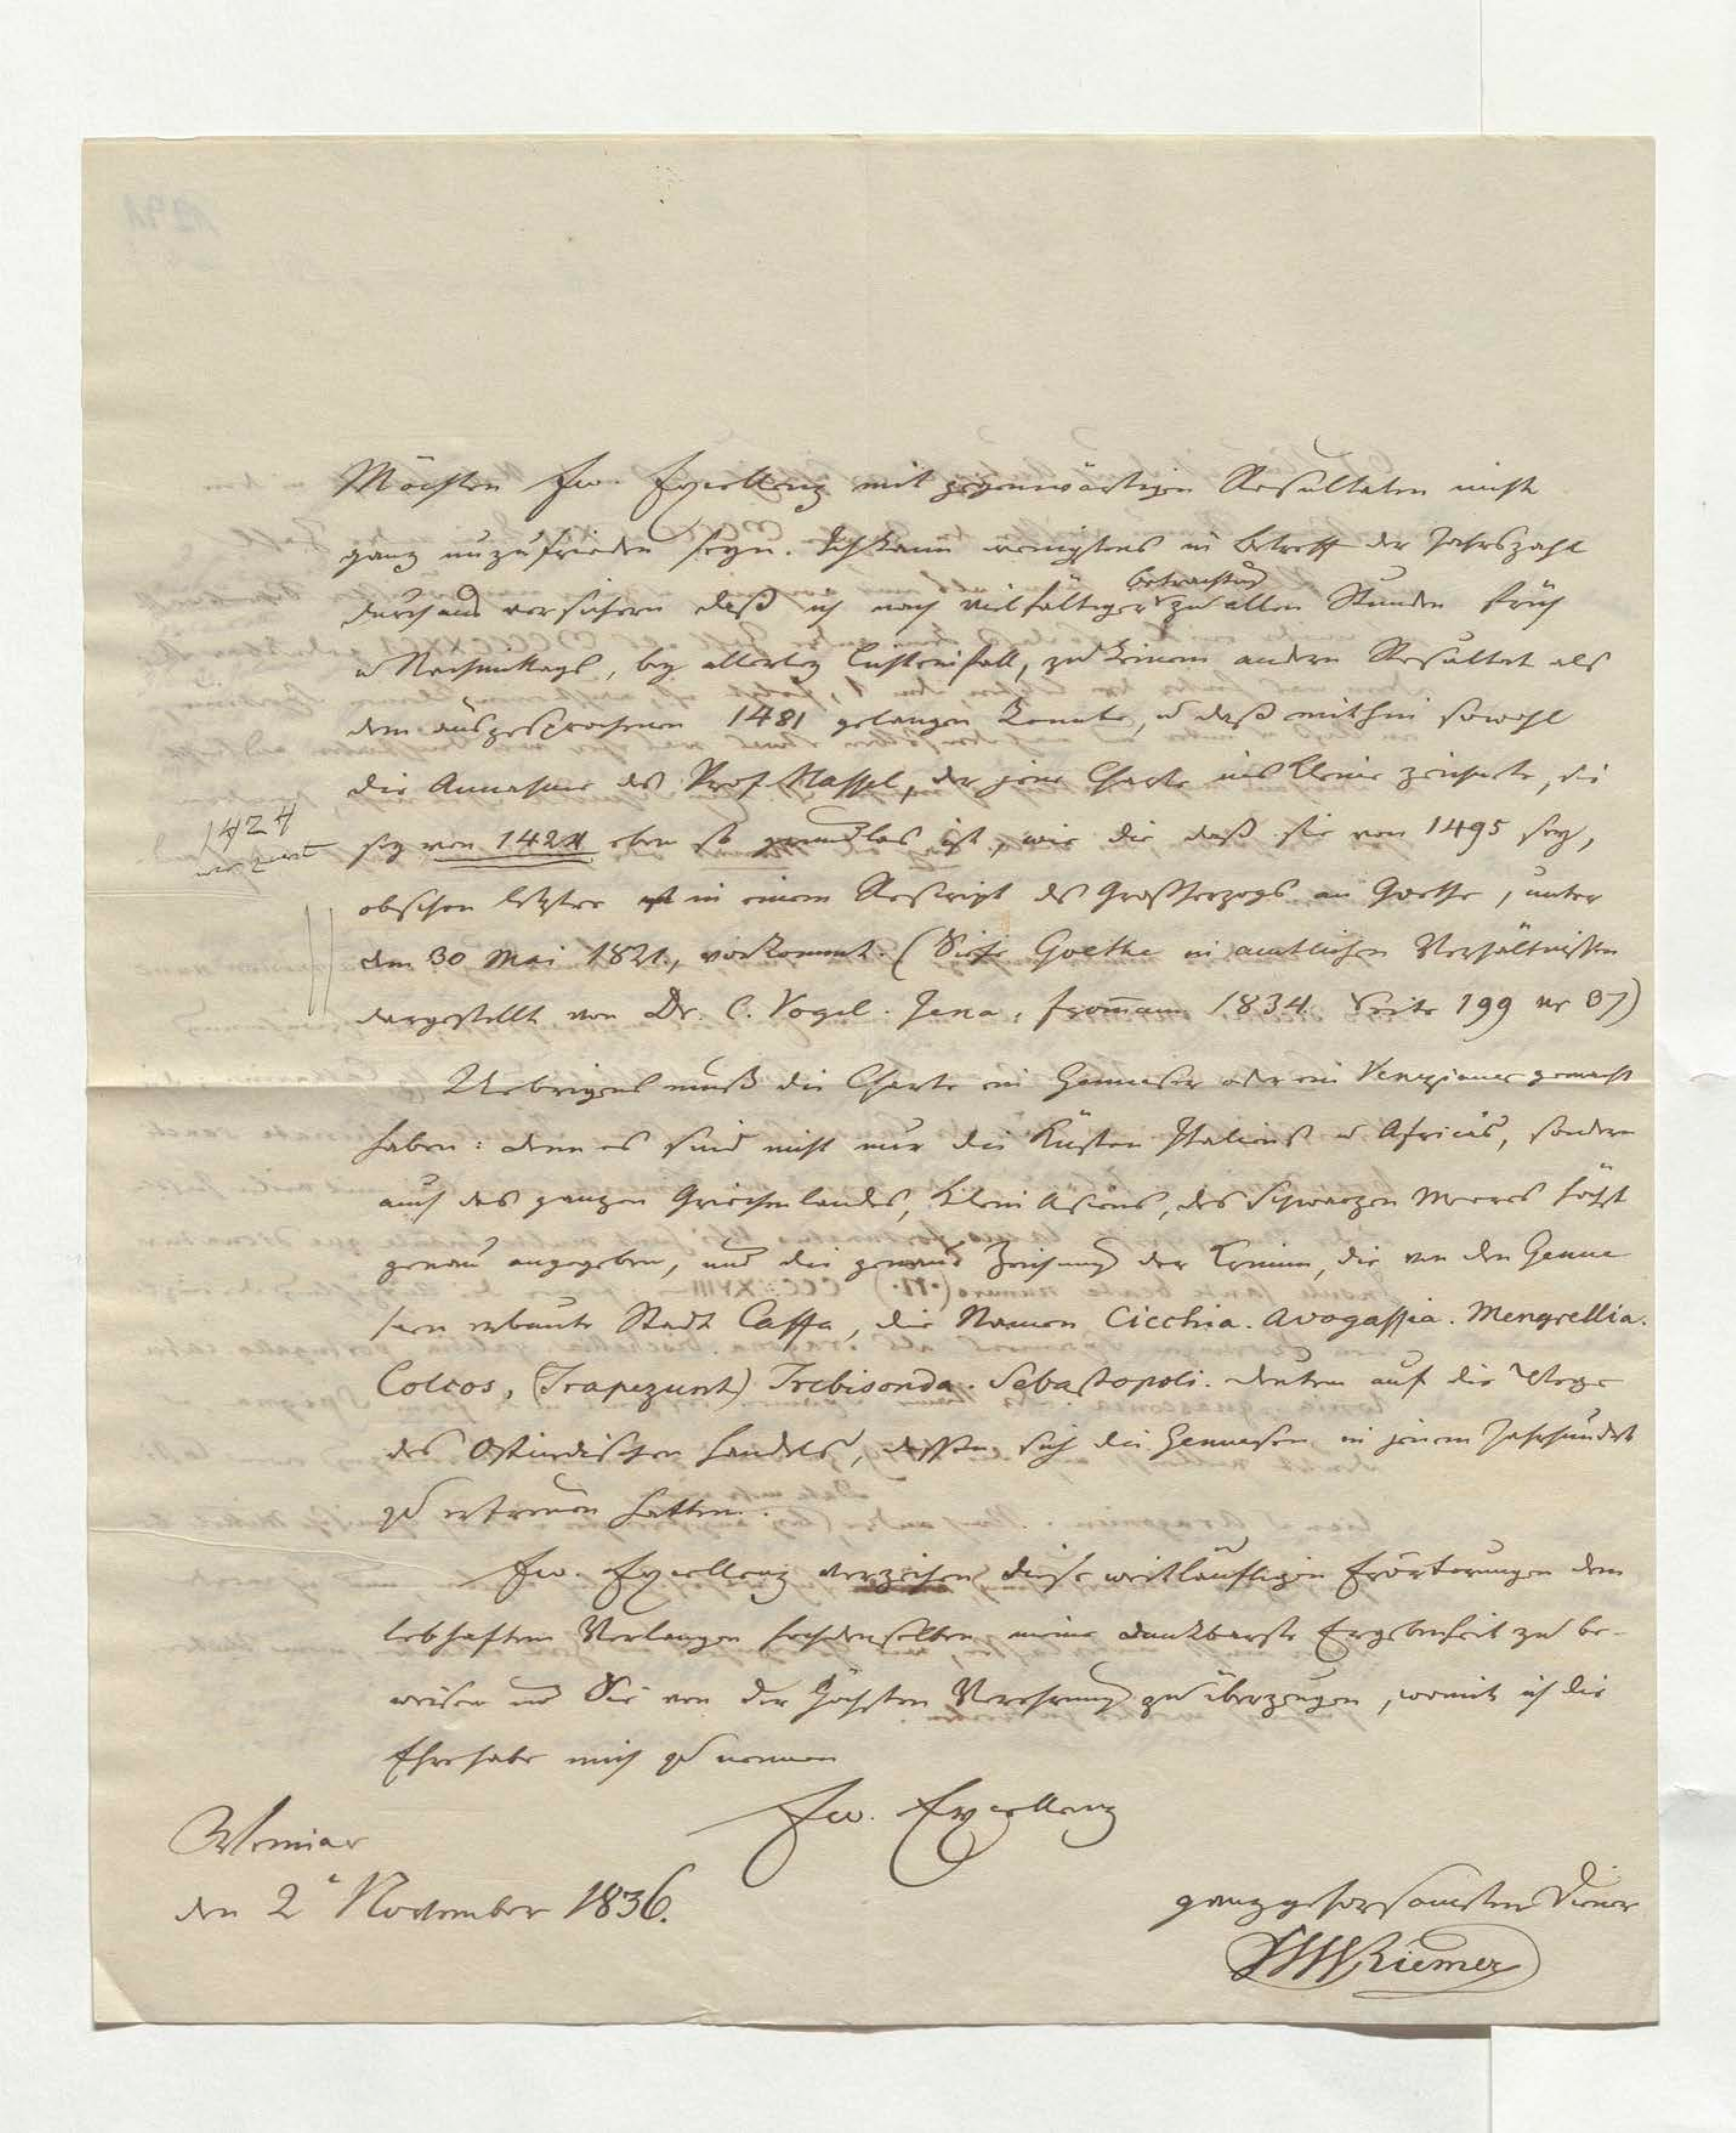 Möchten Ew. Excellenz mit gegenwärtigen Resultaten nicht
ganz unzufrieden seyn. Ich kann wenigstens in Betreff der Jahrszahl
durchaus versichern daß ich nach vielfältiger Betrachtung zu allen Stunden früh
u Nachmittags, bey allerley Lichteinfall, zu keinem andern Resultat als
dem ausgesprochenen 1481 gelangen konnte, u daß mithin sowohl
die Annahme des Prof Hassel, der jene Charte ins Kleine zeichnete, sie
1424
sey von 1424 eben so grundlos ist, wie die daß sie von 1495 sey,
obschon letztre in einem Rescript des Großherzogs an Goethe, unter
dem 30 Mai 1821., vorkommt. (Siehe Goethe in amtlichen Verhältnissen
dargestellt von Dr. C. Vogel. Jena, From̅ann 1834. Seite 199 nr 37)
Uebrigens muß die Charte ein Genueser oder ein Venezianer gemacht
haben: denn es sind nicht nur die Küsten Italiens u Africas, sondern
auch des ganzen Griechenlandes, Klein Asiens, des Schwarzen Meeres höchst
genau angegeben, und die genaue Zeichnung der Krimm, die von den Genue
sern erbaute Stadt Caffa, die Namen Cicchia. Avogassia. Mengrellia.
Colcos, (Trapezunt) Trebisonda. Sebastopoli. deuten auf die Wege
des Ostindischen Handels, dessen sich die Genuesen in jenem Jahrhundert
zu erfreuen hatten.
Ew. Excellenz verzeihen diese weitläuftigen Erörterungen dem
lebhaften Verlangen Hochdenselben meine dankbarste Ergebenheit zu be-
weisen und Sie von der höchsten Verehrung zu überzeugen, womit ich die
Ehre habe mich zu nennen
Ew. Excellenz
Weimar
den 2 November 1836.
ganz gehorsamster Diener
FWRiemer